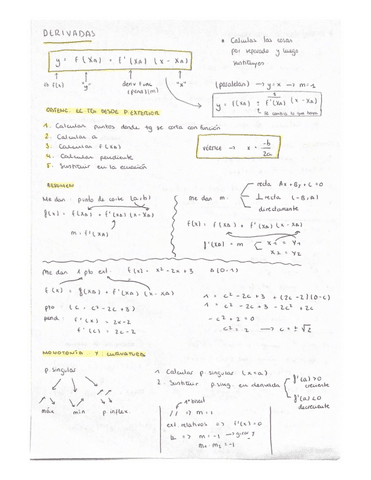 DERIVADAS
y = f(xa) + f'(xa) (x - xa)
* Calculas las cosas
por separado y luego
sustituyes
f(x) "y" "x"
(paralelan) → y=x → m=1
y = f(xa) ± (x - xa)
se cambia lo que haga
1. Calcular puntos donde tg se corta con función
2. Calcular a
3. Calcular f(xa)
4. Calcular pendiente
5. Sustituir en la ecuación
VÉRTICE → x = -b/2a
RESUMEN
Me dan: punto de corte (a,b)
f(x) = f(xa) + f'(xa) (x - xa)
m = f'(xa)
Me dan m:
recta Ax + By + C = 0
⊥ recta (-B, A)
directamente
f(x) = f(xa) + f'(xa) (x - xa)
f'(xa) = m
x1 = y1
x2 = y2
Me dan 1 pto ext. f(x) = x² - 2x + 3 A(0,1)
f(x) = f(xa) + f'(xa) (x - xa)
pto: (c, c² - 2c + 3)
pend: f'(x) = 2x - 2
f'(c) = 2c - 2
1 = c² - 2c + 3 + (2c - 2)(0 - c)
1 = c² - 2c + 3 - 2c² + 2c
-c² + 2 = 0
c² = 2 → c = ± √2
MONOTONÍA Y CURVATURA
p. singular
máx mín p. inflex.
1. Calcular p. singular (x = a)
2. Sustituir p. sing. en derivada
f'(a) > 0
creciente
f'(a) < 0
decreciente
// → m = 1
ext. relativos → f'(x) = 0
m = -1